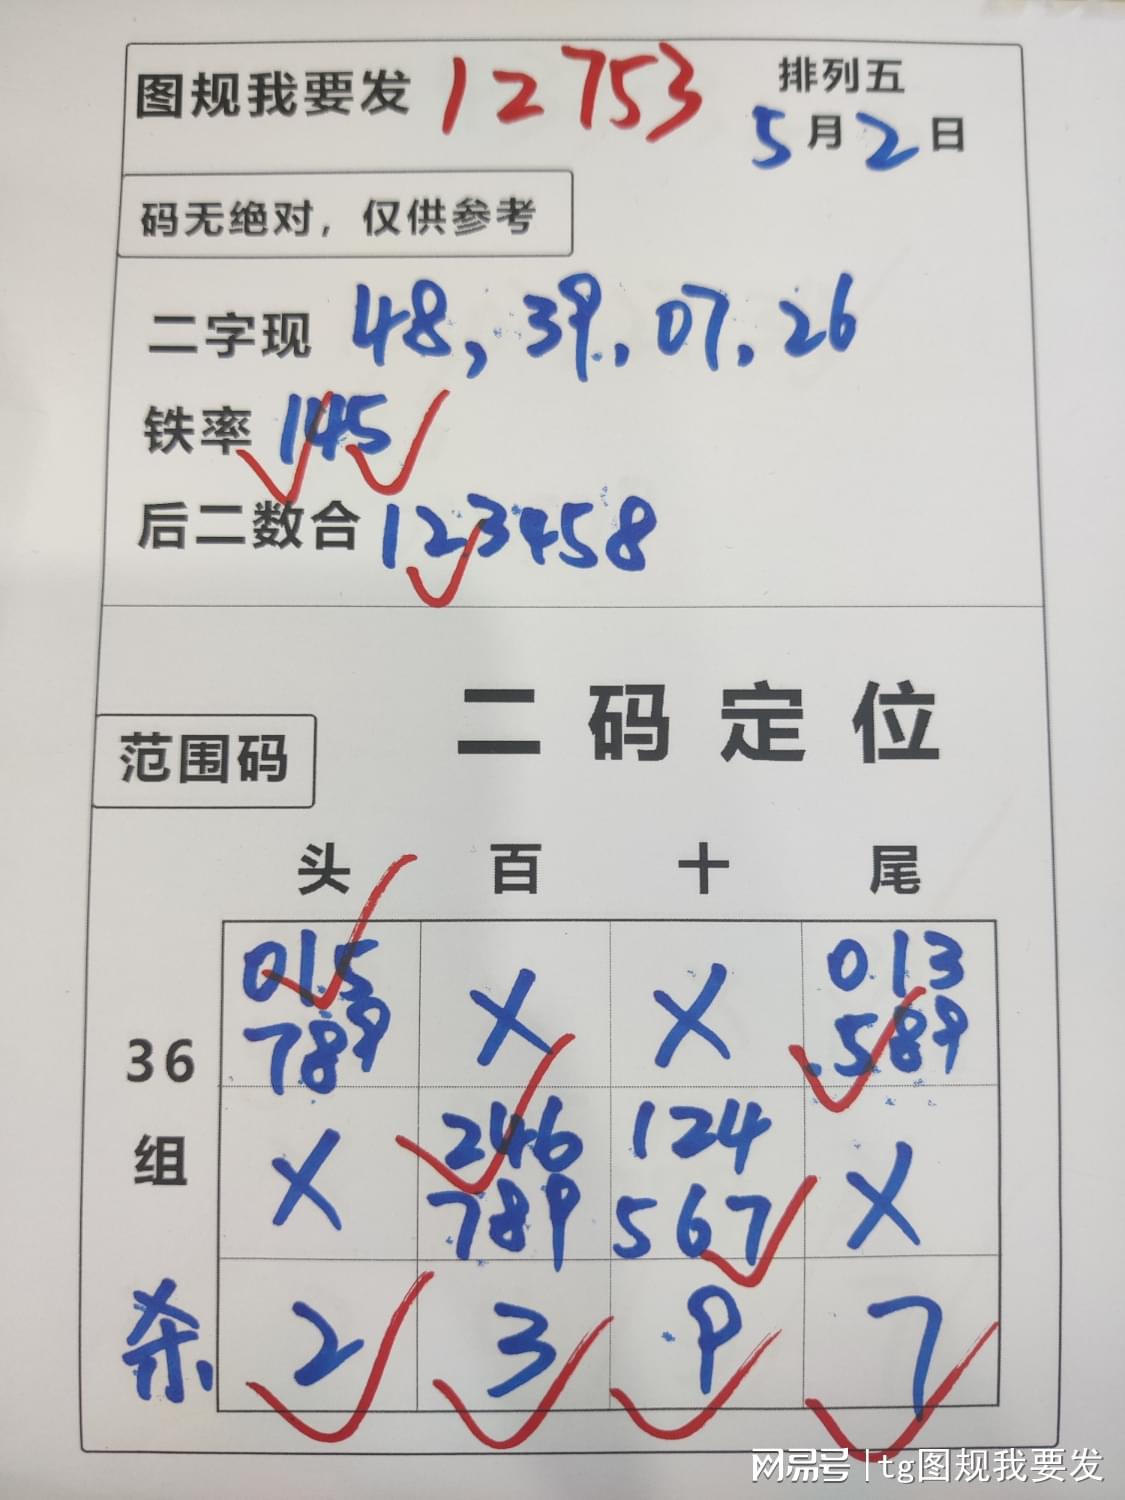 图规我要发 12753 排列五
5月2日
码无绝对，仅供参考
二字现 48，39，07，26
铁率 145
后二数合 123458
二码定位
范围码
头 百 十 尾
015 X X 013
789 589
36
组
X 246 124 X
789 567
杀 2 3 9 7
网易号 | tg图规我要发